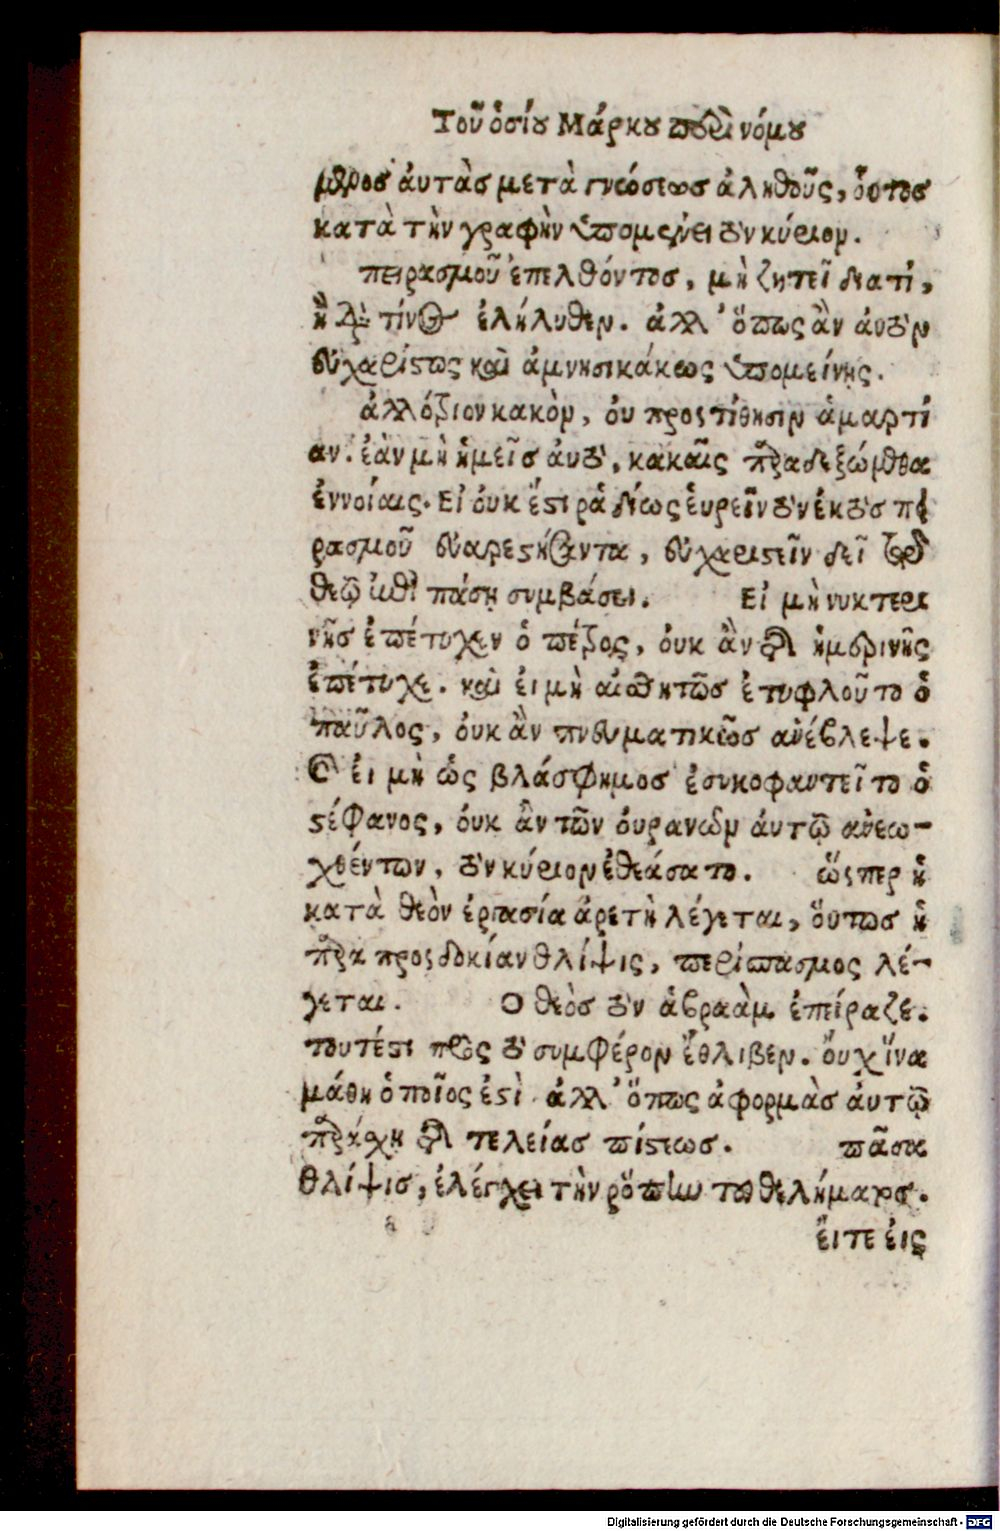 Τοῦ ὁσίου Μάρκου περὶ νόμου
μενος ἀυτὰς μετὰ γνώσεως ἀληθοῦς, οὗτος
κατὰ τὴν γραφὴν ὑπομένει τὸν κύριον.
πειρασμοῦ ἐπελθόντος, μὴ ζητεῖ διατί,
ἢ διὰ τίνος ἐλήλυθεν. ἀλλ' ὅπως ἂν ἀυτὸν
εὐχαρίστως καὶ ἀμνησικάκως ὑπομείνης.
ἀλλόξιον κακὸν, ὀυ προστίθησιν ἁμαρτί
αν. ἐὰν μὴ ἡμεῖς ἀυτὸ, κακαῖς παραδεξώμεθα
ἐννοίαις. Εἰ ὀυκ ἔστι ῥαδίως ἑυρεῖν τὸν ἐκτὸς πει
ρασμοῦ εὐαρεστήσαντα, εὐχαριστεῖν δεῖ τῷ
θεῷ ἐπὶ πάση συμβάσει. Εἰ μὴ νυκτερι
νῆς ἐπέτυχεν ὁ πέτρος, ὀυκ ἂν τῆς ἡμερινῆς
ἐπέτυχε. καὶ ἐι μὴ αἰσθητῶς ἐτυφλοῦτο ὁ
παῦλος, ὀυκ ἂν πνευματικῶς ἀνέβλεψε.
Καὶ ἐι μὴ ὡς βλάσφημος ἐσυκοφαντεῖτο ὁ
στέφανος, ὀυκ ἂν τῶν ὀυρανῶν ἀυτῷ ἀνεω-
χθέντων, τὸν κύριον ἐθεάσατο. ὥςπερ ἡ
κατὰ θεὸν ἐργασία ἀρετὴ λέγεται, ὅυτως ἡ
παρα προσδοκίαν θλίψις, περίπασμος λέ-
γεται. Ο θεὸς τὸν ἀβραὰμ ἐπείραζε.
τουτέστι πρὸς τὸ συμφέρον ἔθλιβεν. ὄυχ ἵνα
μάθη ὁποῖος ἐστὶ ἀλλ' ὅπως ἀφορμὰς ἀυτῷ
παράσχη τῆς τελείας πίστεως. πᾶσα
θλίψις, ἐλέγχει τὴν ῥόπην τοῦ θελήματος.
ἔιτε ἐις
Digitalisierung gefördert durch die Deutsche Forschungsgemeinschaft - DFG